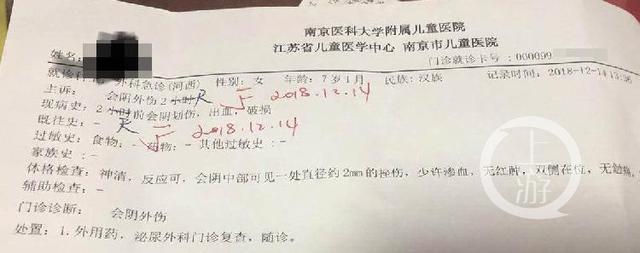 南京医科大学附属儿童医院
江苏省儿童医学中心 南京市儿童医院
门诊就诊卡号：000099
姓名：
就诊科 外科急诊(河西) 性别：女 年龄：7岁1月 民族：汉族 记录时间：2018-12-14 13:36
主诉： 会阴外伤2小时天 2018.12.14
现病史：2小时前会阴划伤，出血，破损
既往史：- 天 2018.12.14
过敏史：食物：- 药物：- 其他过敏史：-
家族史：-
体格检查：神清，反应可，会阴中部可见一处直径约2mm的挫伤，少许渗血，无红肿，双侧在位，无
辅助检查：-
门诊诊断： 会阴外伤
处置：1.外用药，泌尿外科门诊复查，随诊。
上游